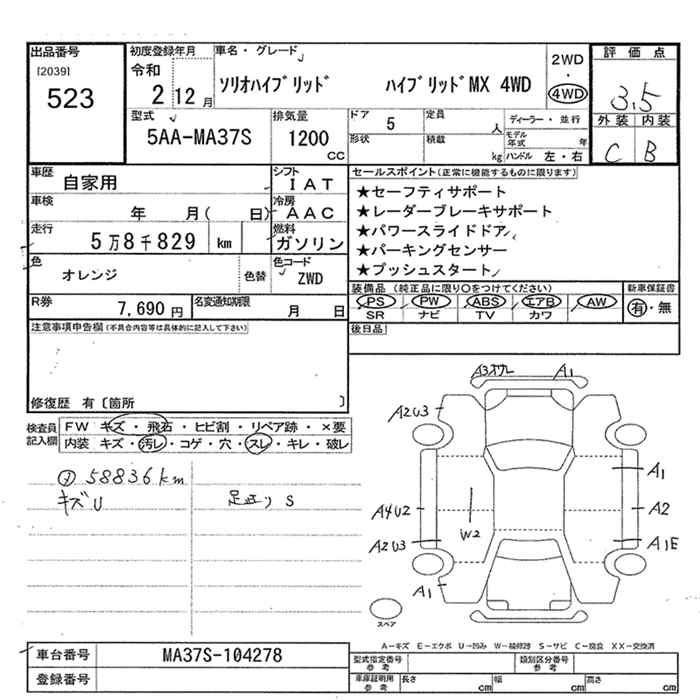 出品番号
[2039]
523
初度登録年月
令和
2 12 月
車名・グレード
ソリオハイブリッド ハイブリッドMX 4WD
2WD
・
4WD
評価点
3.5
外装 内装
C B
型式
5AA-MA37S
排気量
1200
CC
ドア 5
定員 人
形状
積載 kg
ディーラー・並行
モデル年式 年
ハンドル 左・右
車歴
自家用
シフト
IAT
車検
年 月( 日)
冷房
AAC
走行
5万8千829 km
燃料
ガソリン
色
オレンジ
色替
色コード
ZWD
R券 7,690 円
名変通知期限
月 日
セールスポイント(正常に機能するものに限ります)
★セーフティサポート
★レーダーブレーキサポート
★パワースライドドア
★パーキングセンサー
★プッシュスタート
装備品 (純正品に限り○をつけてください)
PS PW ABS エアB AW
SR ナビ TV カワ
新車保証書
有・無
後日品
注意事項申告欄(不具合内容等は具体的に記入して下さい)
修復歴 有〔箇所 〕
検査員記入欄
FW キズ・飛石・ヒビ割・リペア跡・×要
内装 キズ・汚レ・コゲ・穴・スレ・キレ・破レ
58836km
キズU
S
A3 A1
A2U3
A1
A4U2
A2
W2
A2U3
A1E
A1
スペア
A-キズ E-エクボ U-凹み W-補修跡 S-サビ C-腐食 XX-交換済
車台番号 MA37S-104278
登録番号
型式指定番号
参考
類別区分番号
参考
車庫証明用
参考
長さ cm 幅 cm 高さ cm